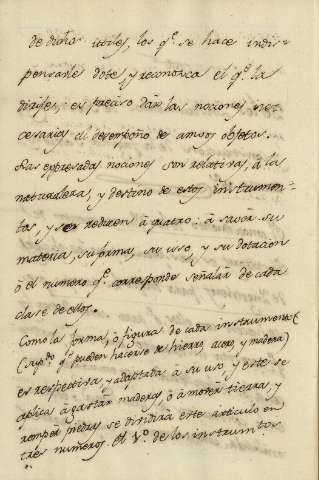 de dichos utiles, los q.e se hace indis-
pensable dote, y reconosca el q.e la
dirifes; es preciso dàr las nociones ne-
cesarias al desempeño de amvos objetos.
Las expresadas nociones son relativas, à la
naturaleza, y destino de estos instrumen-
tos, y se reducen à quatro: à saver su
materia, su forma, su uso, y su dotacion
ò el numero q.e corresponde señalàr de cada
clase de ellos.
Como la forma, ò figura de cada instrument
(sup.to q.e pueden hacerse de hierro, acero, y madera)
es respectiva y adaptada à su uso, y este se
aplica à gastàr maderas, ò à mover tierra, y
rompèr piedras se dividirà este articulo en
tres numeros. El 1.o de los instrum.tos